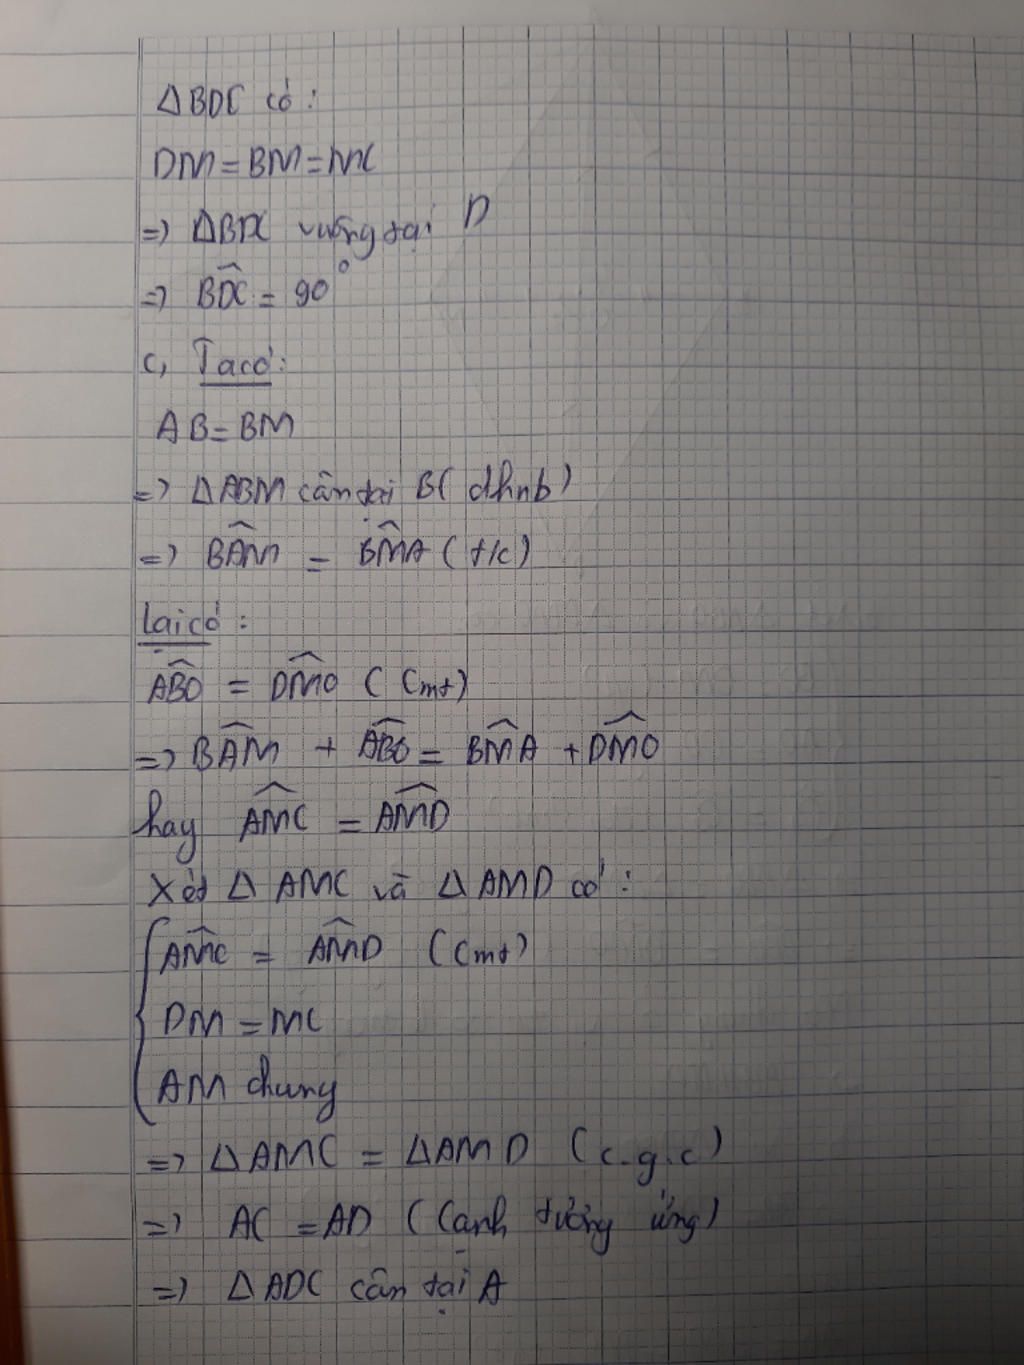 ΔBDC có:
DM = BM = MC
=> ΔBDC vuông tại D
=> \widehat{BDC} = 90°
c, Ta có:
AB = BM
=> ΔABM cân tại B (dhnb)
=> \widehat{BAM} = \widehat{BMA} (t/c)
Lại có:
\widehat{ABO} = \widehat{DMO} (Cmt)
=> \widehat{BAM} + \widehat{ABO} = \widehat{BMA} + \widehat{DMO}
hay \widehat{AMC} = \widehat{AMD}
Xét Δ AMC và Δ AMD có:
\widehat{AMC} = \widehat{AMD} (Cmt)
DM = MC
AM chung
=> ΔAMC = ΔAMD (c.g.c)
=> AC = AD (Cạnh tưởng ứng)
=> ΔADC cân tại A